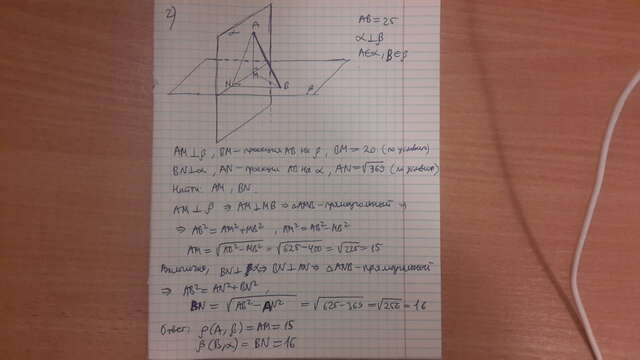 2)
α
A
N
M
B
β
AB = 25
α ⊥ β
A∈α, B∈β
AM ⊥ β, BM - проекция AB на β, BM = 20 (по условию)
BN ⊥ α, AN - проекция AB на α, AN = √369 (по условию)
Найти: AM, BN.
AM ⊥ β ⇒ AM ⊥ MB ⇒ △AMB - прямоугольный и
⇒ AB² = AM² + MB², AM² = AB² - MB²
AM = √AB² - MB² = √625 - 400 = √225 = 15
Аналогично, BN ⊥ α ⇒ BN ⊥ AN ⇒ △ANB - прямоугольный
⇒ AB² = AN² + BN²,
BN = √AB² - AN² = √625 - 369 = √256 = 16
Ответ: ρ(A, β) = AM = 15
ρ(B, α) = BN = 16